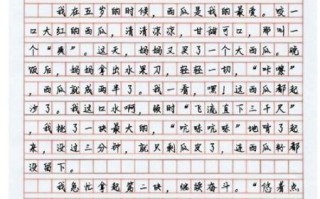 我在五岁的时候，西瓜是我的最爱。咬一
口大红的西瓜，清清凉凉，甘甜可口，那叫一
个“爽”。这天，妈妈又买了一个大西瓜。晚
饭后，妈妈拿出水果刀，轻轻一切，“咔嚓”，
西瓜就成两半了。我一看，嘿！这西瓜都起
沙了。我这口水啊，顿时“飞流直下三千尺”
我挑了一块最大的，“吭哧吭哧”地啃了起
来，没过三分钟，就只剩瓜皮了，连西瓜籽都
没留下。
我急忙拿起第二块，继续奋斗。“悠着点